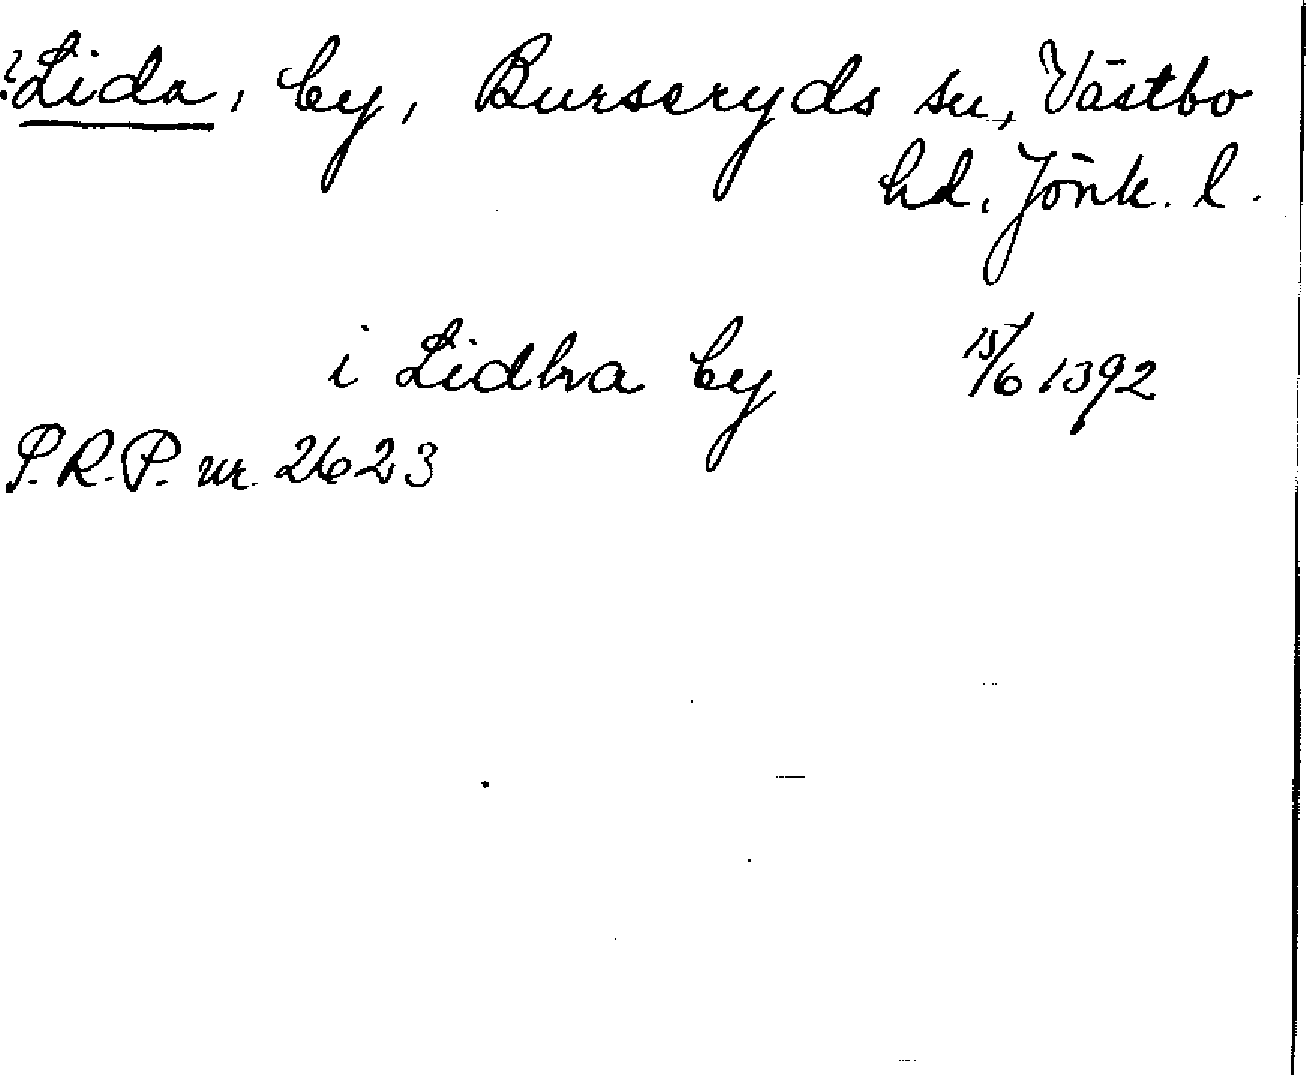 ?Lida, by, Burseryds sn, Västbo
hd. Jönk. l.
i Lidha by 15/6 1392
P.R.P. nr. 2623